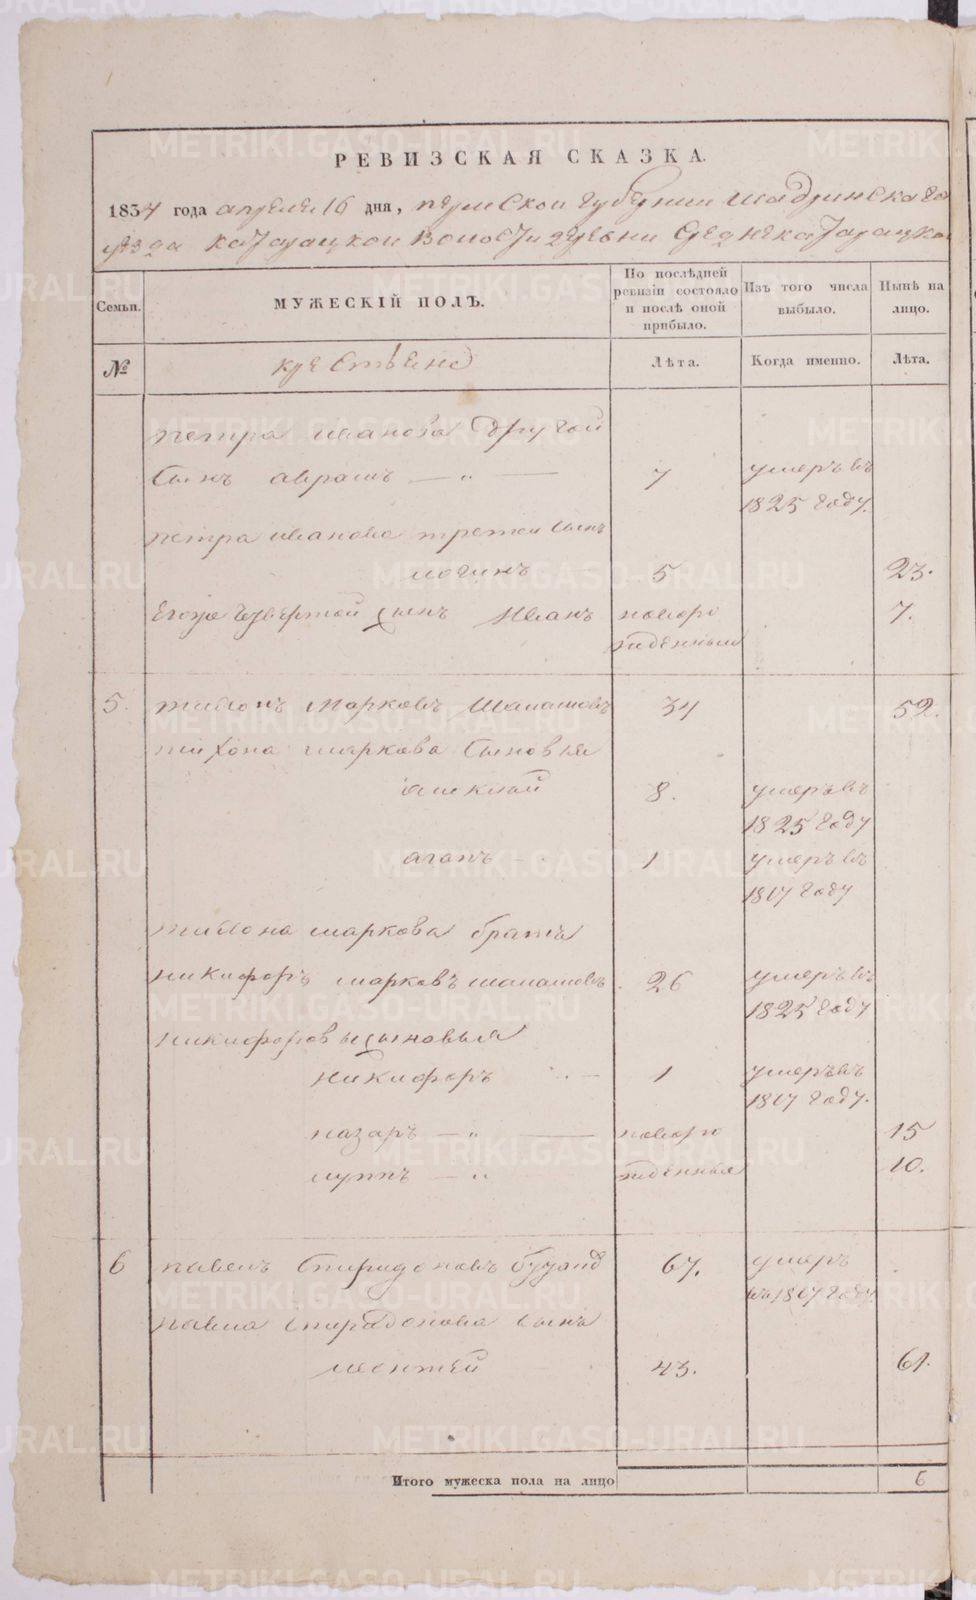 РЕВИЗСКАЯ СКАЗКА.
1834 года апреля 16 дня, пермской губернии шадринскаго
уезда катарацкой волости деревни средне катарацкой
Семьи.
МУЖЕСКІЙ ПОЛЪ.
По послѣдней ревизіи состояло и послѣ оной прибыло.
Изъ того числа выбыло.
Нынѣ на лицо.
№
крестьяне
Лѣта.
Когда именно.
Лѣта.
петра иванова другой
сынъ аврамъ — „ — 7 умеръ въ
1825 году.
петра иванова третей сынъ
логинъ 5 23.
Егоже четвертой сынъ Иванъ новоро 7.
жденныи
5. тихонъ Марковъ 34 52.
тихона маркова сыновья
алексей 8. умеръ въ
1825 году
агапъ 1 умеръ въ
1817 году
тихона маркова братъ
никифоръ марковъ 26 умеръ въ
1825 году
никифоровы сыновья
никифоръ — 1 умеръ въ
1817 году.
назаръ — „ — новоро 15
луппъ — „ жденныя 10.
6 павелъ Спиридоновъ 67. умеръ
въ 1817 году.
павла спиридонова сынъ
леонтей 43. 61.
Итого мужеска пола на лицо 6
METRIKI.GASO-URAL.RU